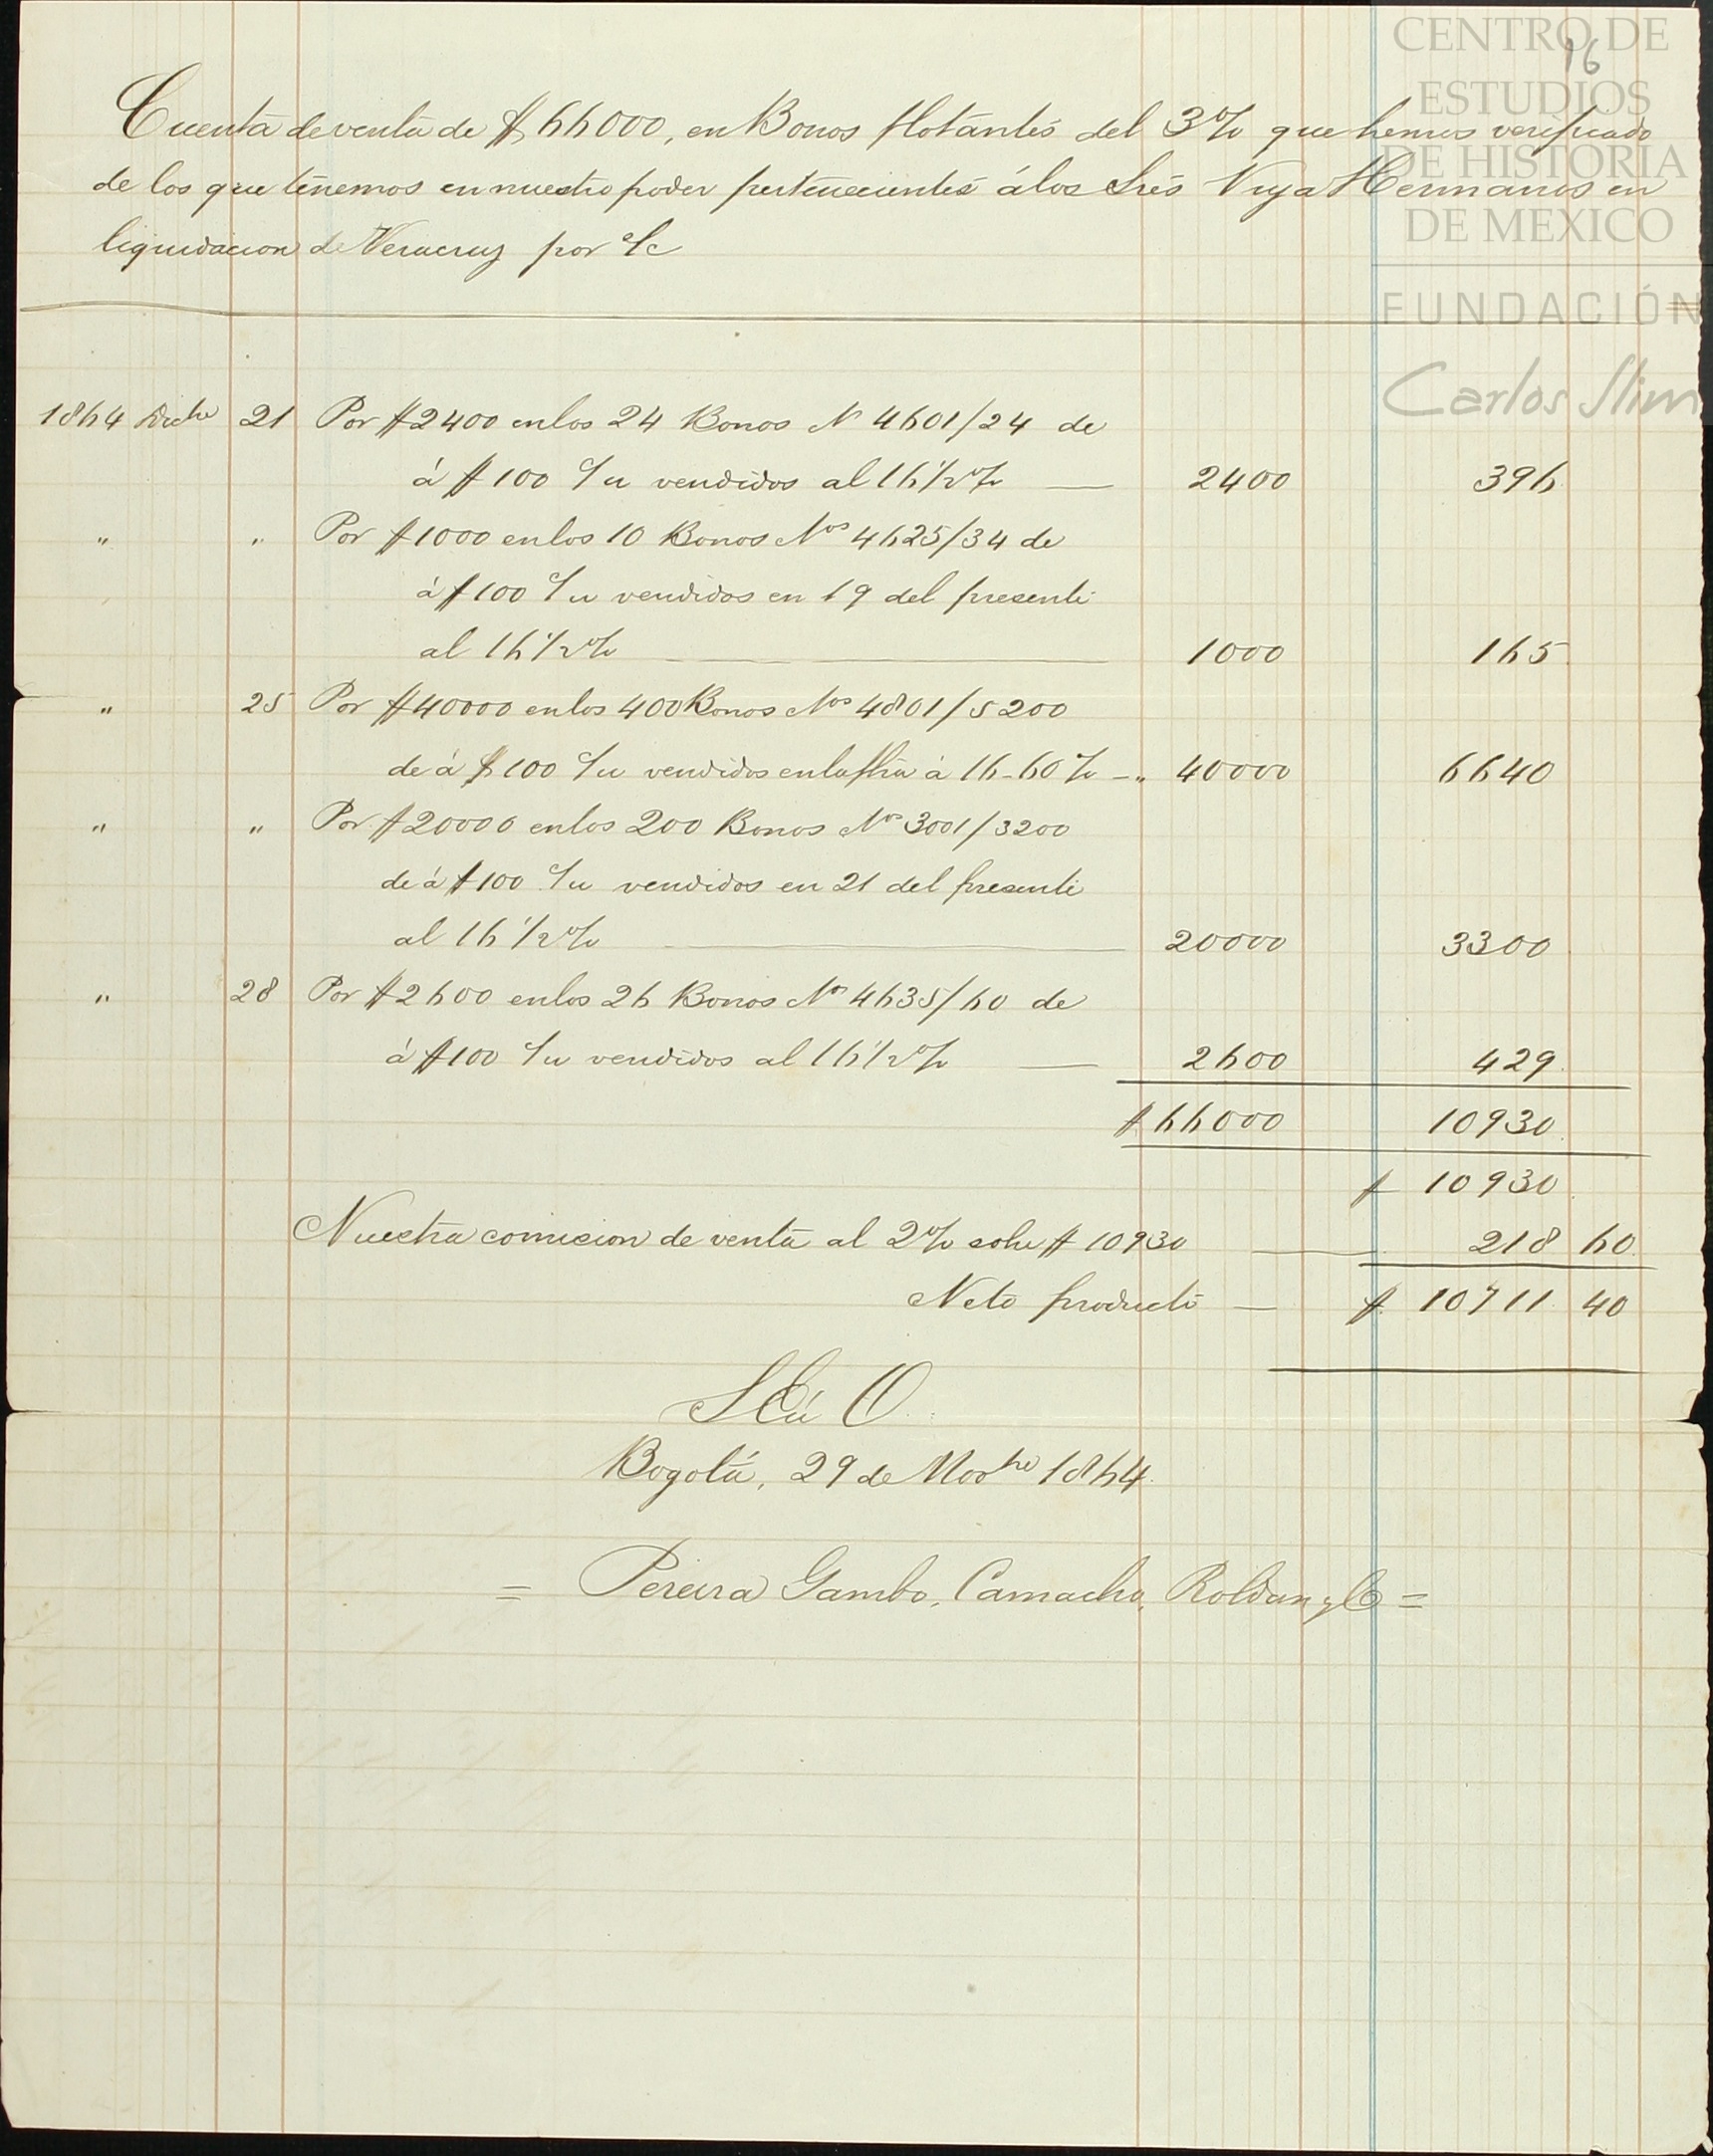 CENTRO DE
16
ESTUDIOS
DE HISTORIA
DE MEXICO
FUNDACIÓN
Carlos Slim
Cuenta de venta de $ 66000, en Bonos flotantes del 3% que hemos verificado
de los que tenemos en nuestro poder pertenecientes á los Sres Hermanos en
liquidacion de Veracruz por c/c
1864 21 Por $2400 en los 24 Bonos Nº 4601/24 de
á $100 c/u vendidos al 16 1/2% — 2400 396
" " Por $1000 en los 10 Bonos Nos 4625/34 de
á $100 c/u vendidos en 19 del presente
al 16 1/2% — 1000 165
" 25 Por $40000 en los 400 Bonos Nos 4801/5200
de á $100 c/u vendidos en la fha á 16-60% — " 40000 6640
" " Por $20000 en los 200 Bonos Nos 3001/3200
de á $100 c/u vendidos en 21 del presente
al 16 1/2% — 20000 3300
" 28 Por $2600 en los 26 Bonos Nos 4635/60 de
á $100 c/u vendidos al 16 1/2% — 2600 429
$ 66000 10930
$ 10930
Nuestra comision de venta al 2% sobre $ 10930 — 218 60
Neto producto — $ 10711 40
S. E. ú O.
Bogotá, 29 de 1864.
= Pereira Gamba, Camacho, Roldan y Cª =